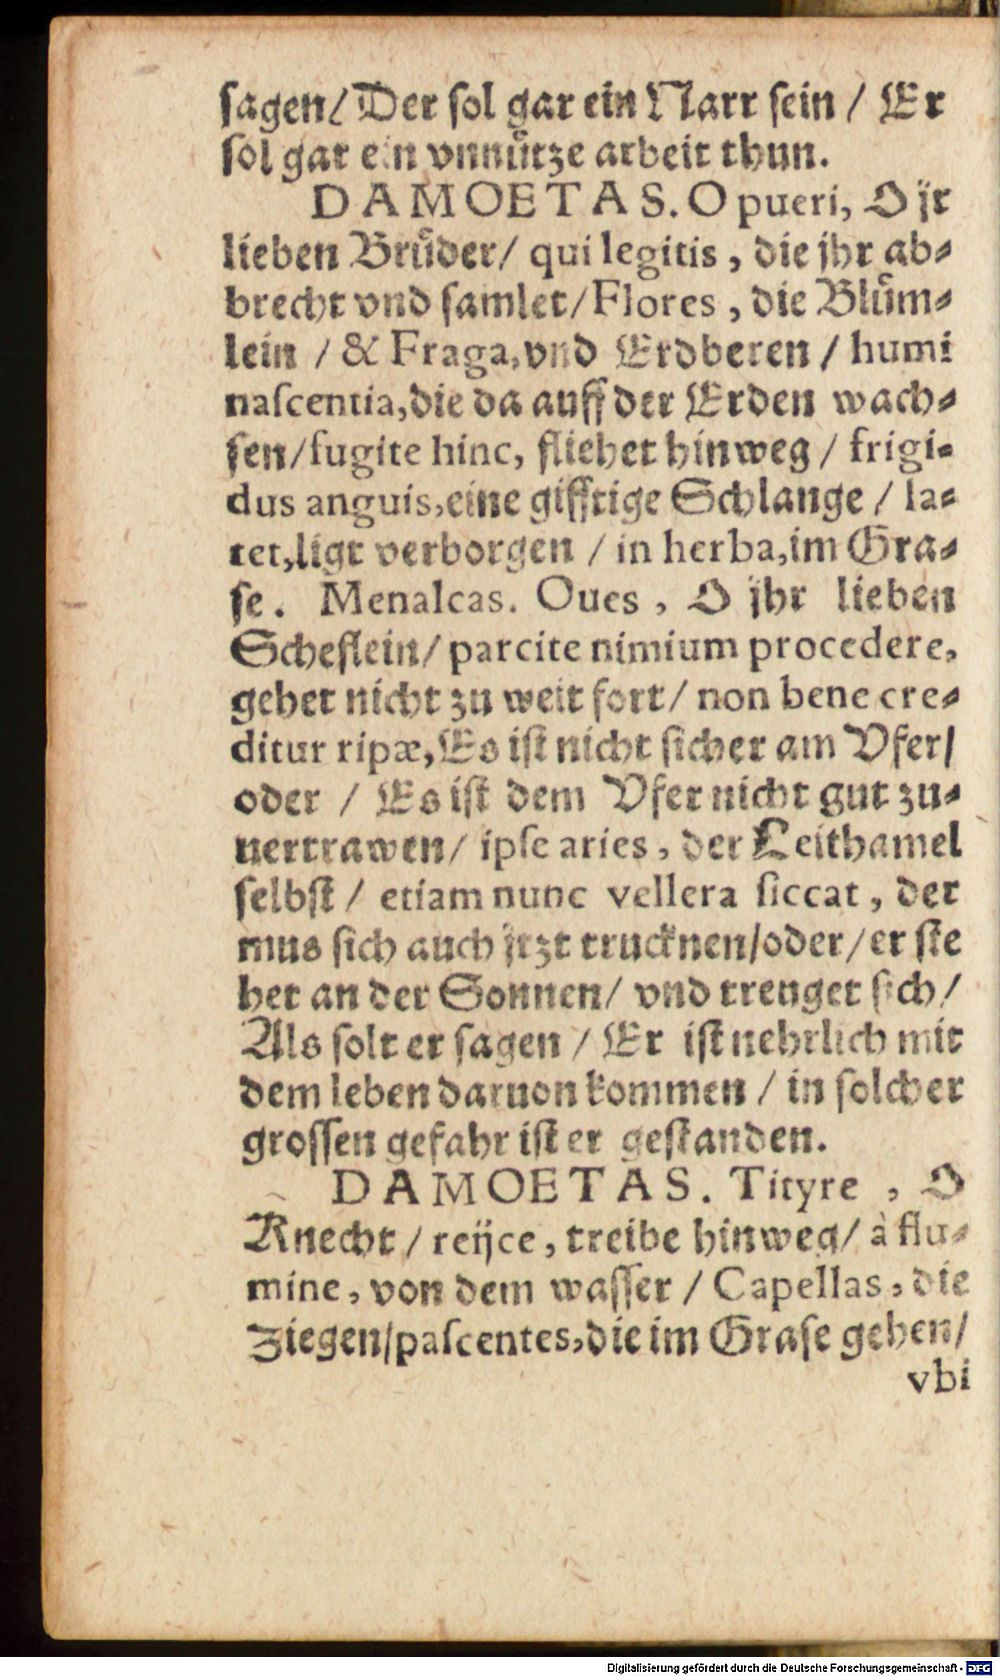 sagen/ Der sol gar ein Narr sein / Er
sol gar ein vnnuͤtze arbeit thun.
DAMOETAS. O pueri, O jr
lieben Bruͤder/ qui legitis, die jhr ab⸗
brecht vnd samlet/ Flores, die Bluͤm⸗
lein / & Fraga, vnd Erdberen / humi
nascentia, die da auff der Erden wach⸗
sen/ fugite hinc, fliehet hinweg / frigi⸗
dus anguis, eine gifftige Schlange / la⸗
tet, ligt verborgen / in herba, im Gra⸗
se. Menalcas. Oues, O jhr lieben
Scheflein/ parcite nimium procedere,
gehet nicht zu weit fort/ non bene cre⸗
ditur ripæ, Es ist nicht sicher am Vfer/
oder / Es ist dem Vfer nicht gut zu⸗
uertrawen/ ipse aries, der Leithamel
selbst / etiam nunc vellera siccat, der
mus sich auch jtzt trucknen/oder/ er ste
het an der Sonnen/ vnd treuget sich/
Als solt er sagen / Er ist nehrlich mit
dem leben daruon kommen / in solcher
grossen gefahr ist er gestanden.
DAMOETAS. Tityre, O
Knecht / reijce, treibe hinweg/ à flu⸗
mine, von dem wasser / Capellas, die
Ziegen/pascentes, die im Grase gehen/
vbi
Digitalisierung gefördert durch die Deutsche Forschungsgemeinschaft - DFG